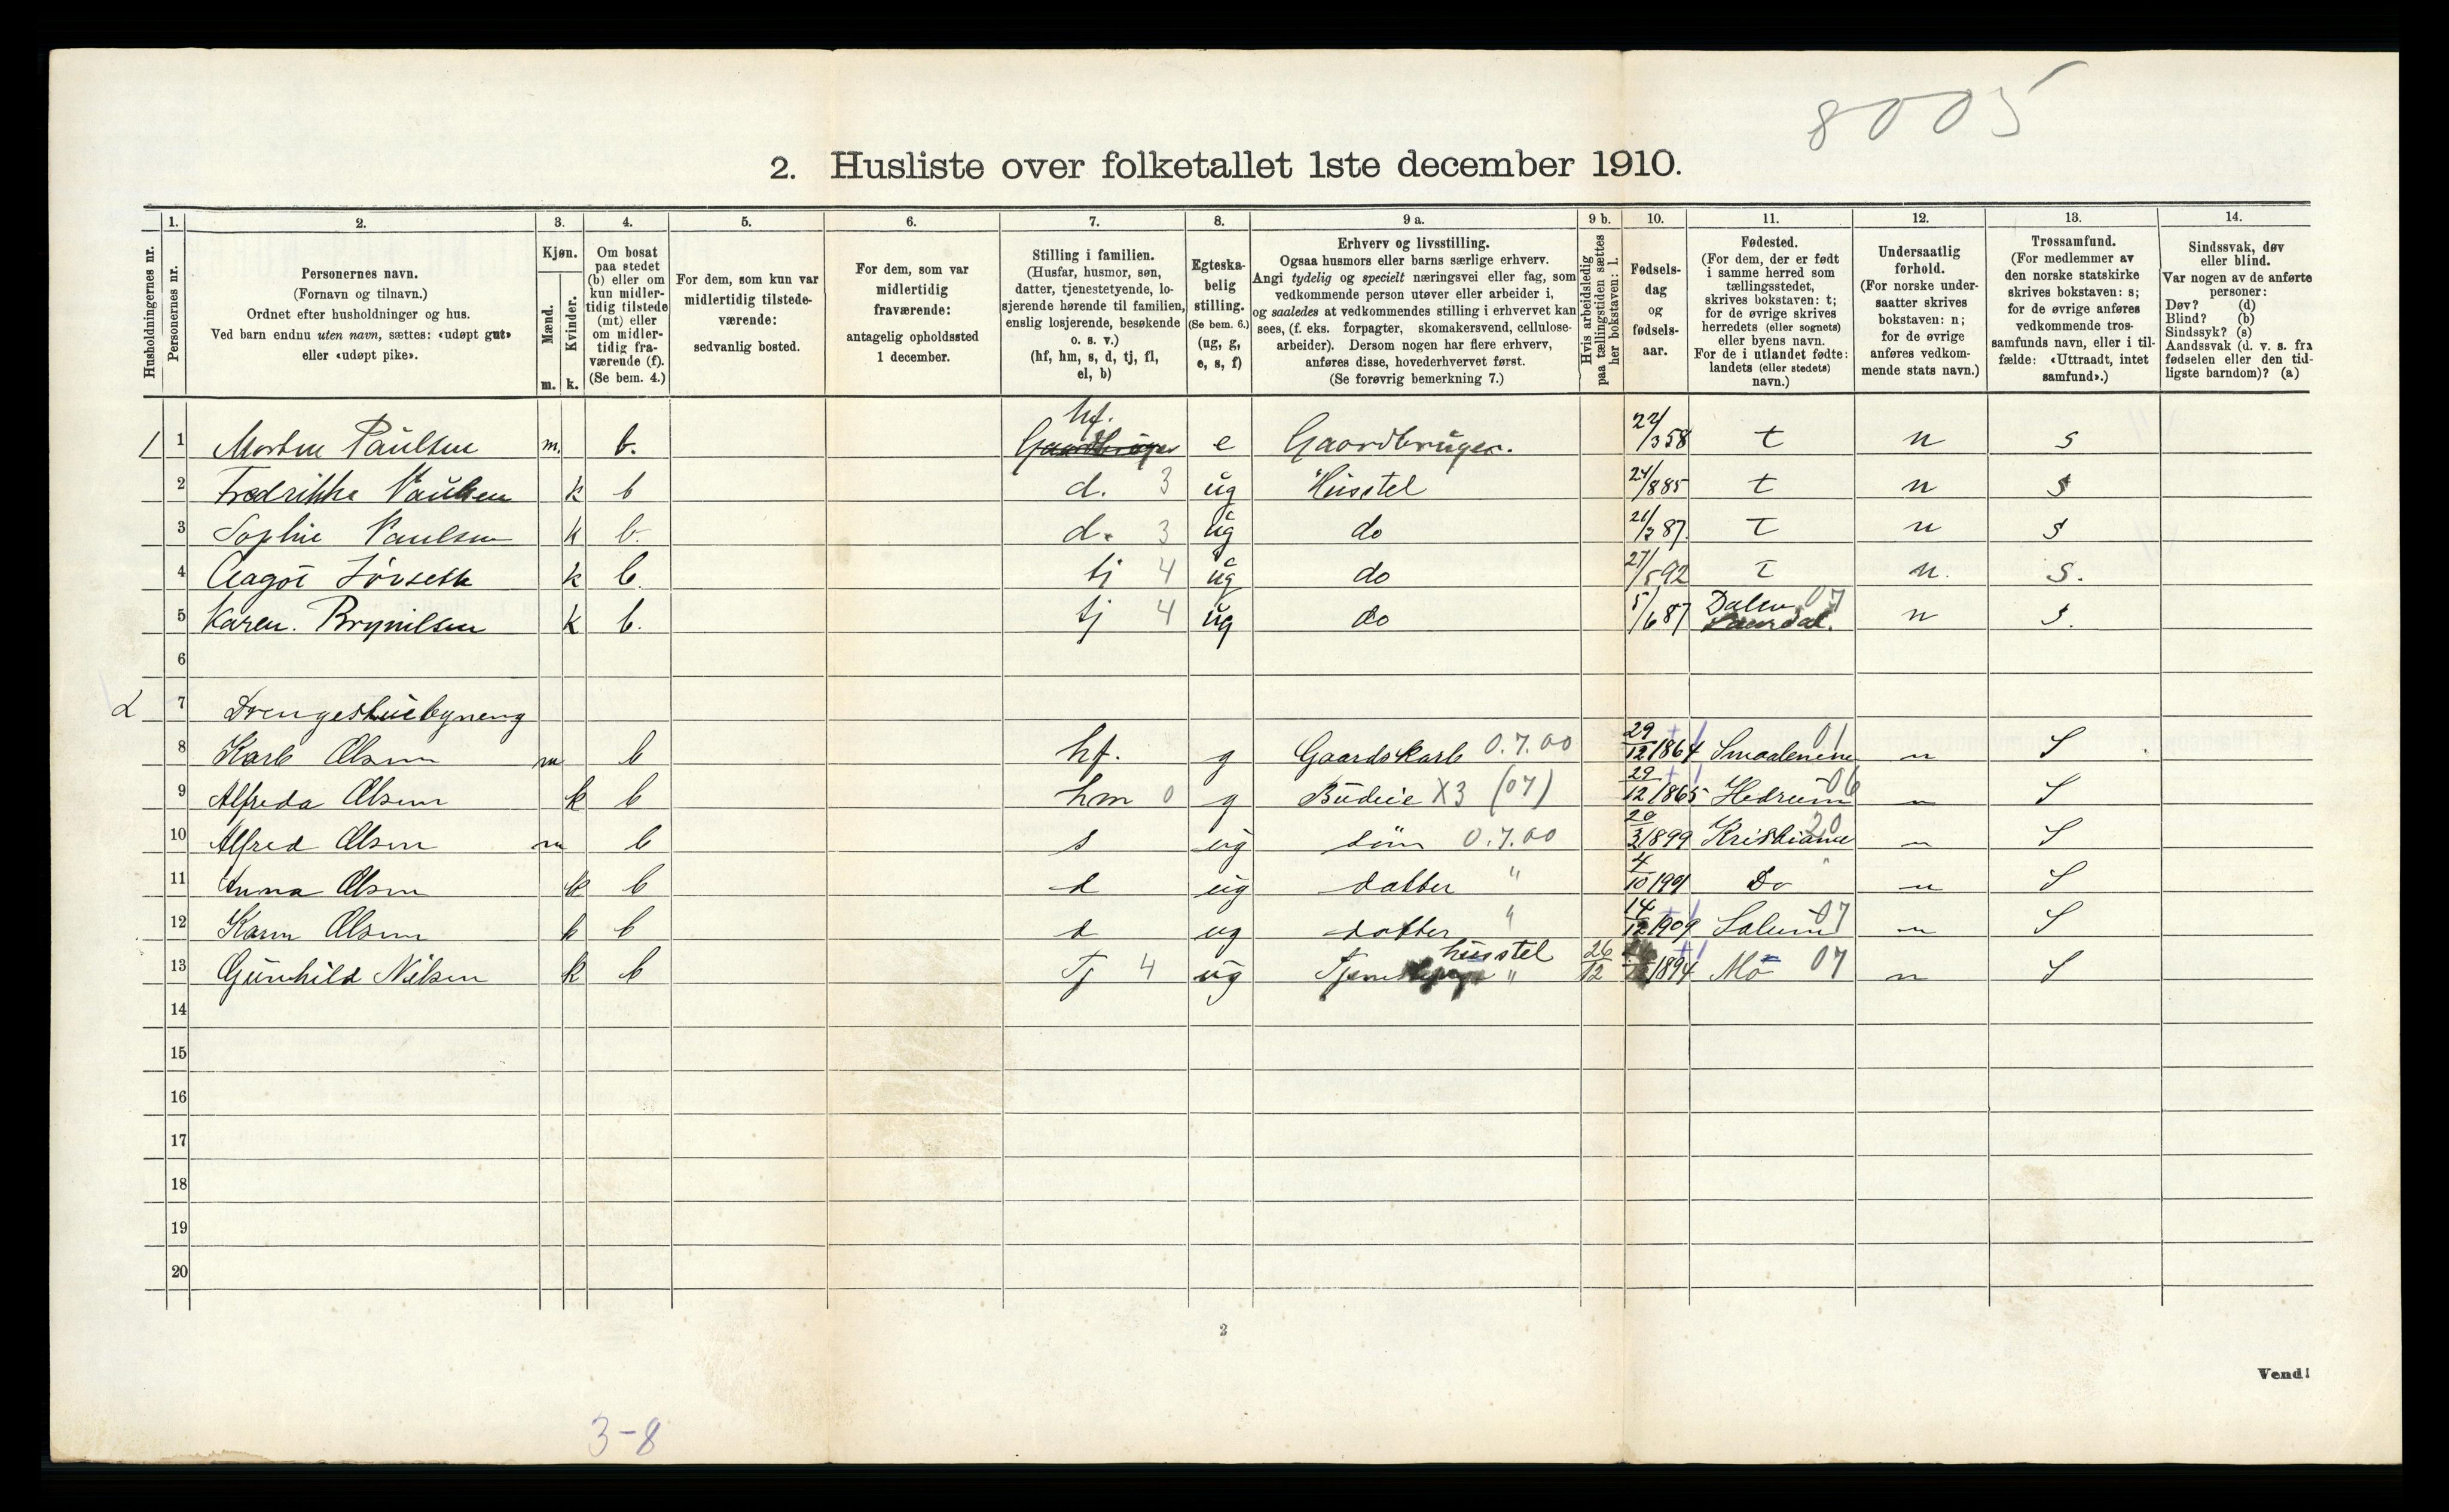 8005
2. Husliste over folketallet 1ste december 1910.
Husholdningernes nr.
1.
Personernes nr.
2.
Personernes navn.
(Fornavn og tilnavn.)
Ordnet efter husholdninger og hus.
Ved barn endnu uten navn, sættes: «udøpt gut»
eller «udøpt pike».
3.
Kjøn.
Mænd.
Kvinder.
m. k.
4.
Om bosat
paa stedet
(b) eller om
kun midler-
tidig tilstede
(mt) eller
om midler-
tidig fra-
værende (f).
(Se bem. 4.)
5.
For dem, som kun var
midlertidig tilstede-
værende:
sedvanlig bosted.
6.
For dem, som var
midlertidig
fraværende:
antagelig opholdssted
1 december.
7.
Stilling i familien.
(Husfar, husmor, søn,
datter, tjenestetyende, lo-
sjerende hørende til familien,
enslig losjerende, besøkende
o. s. v.)
(hf, hm, s, d, tj, fl,
el, b)
8.
Egteska-
belig
stilling.
(Se bem. 6.)
(ug, g,
e, s, f)
9 a.
Erhverv og livsstilling.
Ogsaa husmors eller barns særlige erhverv.
Angi tydelig og specielt næringsvei eller fag, som
vedkommende person utøver eller arbeider i,
og saaledes at vedkommendes stilling i erhvervet kan
sees, (f. eks. forpagter, skomakersvend, cellulose-
arbeider). Dersom nogen har flere erhverv,
anføres disse, hovederhvervet først.
(Se forøvrig bemerkning 7.)
9 b.
Hvis arbeidsledig
paa tællingstiden sættes
her bokstaven: l.
10.
Fødsels-
dag
og
fødsels-
aar.
11.
Fødested.
(For dem, der er født
i samme herred som
tællingsstedet,
skrives bokstaven: t;
for de øvrige skrives
herredets (eller sognets)
eller byens navn.
For de i utlandet fødte:
landets (eller stedets)
navn.)
12.
Undersaatlig
forhold.
(For norske under-
saatter skrives
bokstaven: n;
for de øvrige
anføres vedkom-
mende stats navn.)
13.
Trossamfund.
(For medlemmer av
den norske statskirke
skrives bokstaven: s;
for de øvrige anføres
vedkommende tros-
samfunds navn, eller i til-
fælde: «Uttraadt, intet
samfund».)
14.
Sindssvak, døv
eller blind.
Var nogen av de anførte
personer:
Døv? (d)
Blind? (b)
Sindssyk? (s)
Aandssvak (d. v. s. fra
fødselen eller den tid-
ligste barndom)? (a)
1 1 Morten Paulsen m. b. hf. Gaardbruger e Gaardbruger. 22/3 58 t n s
2 Fredrikke Paulsen k b d. 3 ug Husstel 24/8 85 t n s
3 Sophie Paulsen k b. d. 3 ug do 21/3 87. t n s
4 Aagot k b. tj 4 ug do 27/5 92 t n. s.
5 Karen. Brynilsen k b. tj 4 ug do 5/6 87 Dalen 07 n s.
6
2 7 Drengestuebygneng
8 Karl Olsen m b hf. g Gaardskarl 0.7.00 29/12 1864 Smaalenene 01 n S
9 Alfreda Olsen k b hm 0 g Budeie X3 (07) 29/12 1865 Hedrum 06 n S
10 Alfred Olsen m b s ug søn 0.7.00 20/3 1899 Kristiania 20 n S
11 Anna Olsen k b d ug datter " 4/10 1901 Do " n S
12 Karen Olsen k b d ug datter " 14/12 1909 Solum 07 n S
13 Gunhild Nilsen k b Tj 4 ug husstel " 26/12 1894 Mo 07 n S
14
15
16
17
18
19
20
2
Vend!
3-8